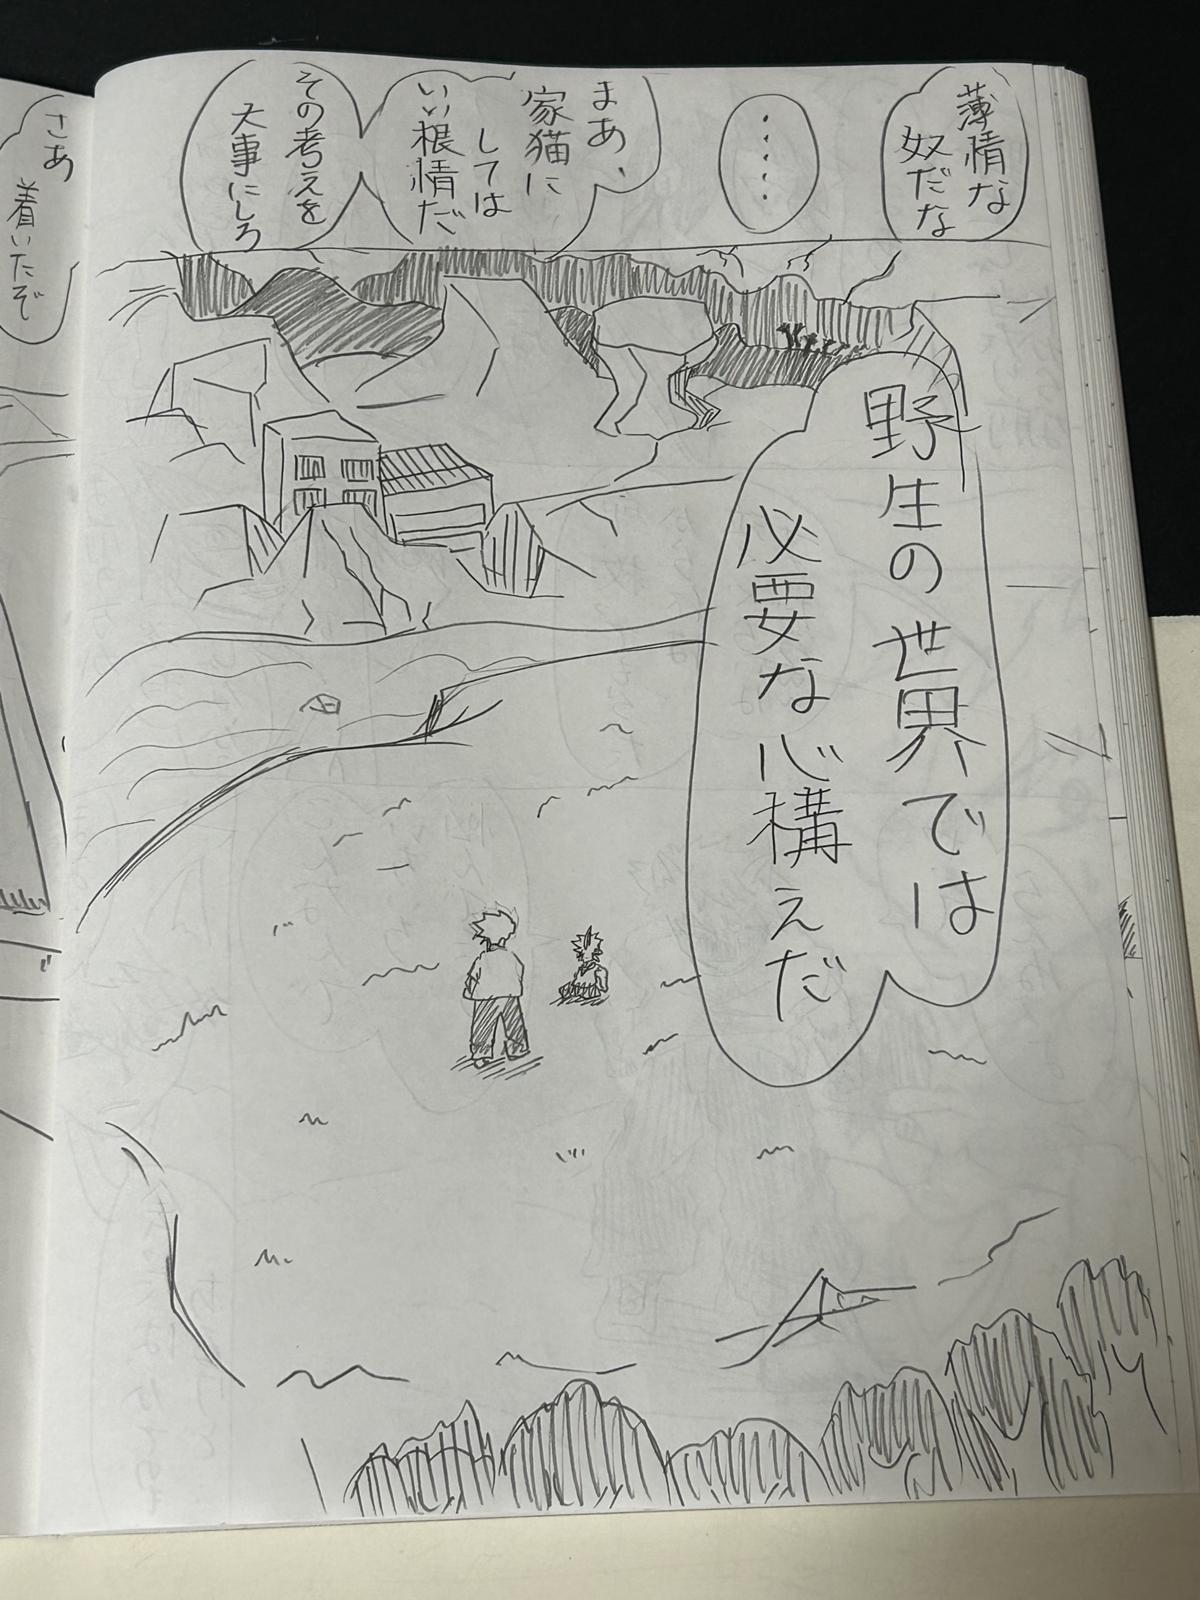 薄情な
奴だな
・・・・・
まあ、
家猫に
しては
いい根情だ
その考えを
大事にしろ
野生の世界では
必要な心構えだ
さあ
着いたぞ